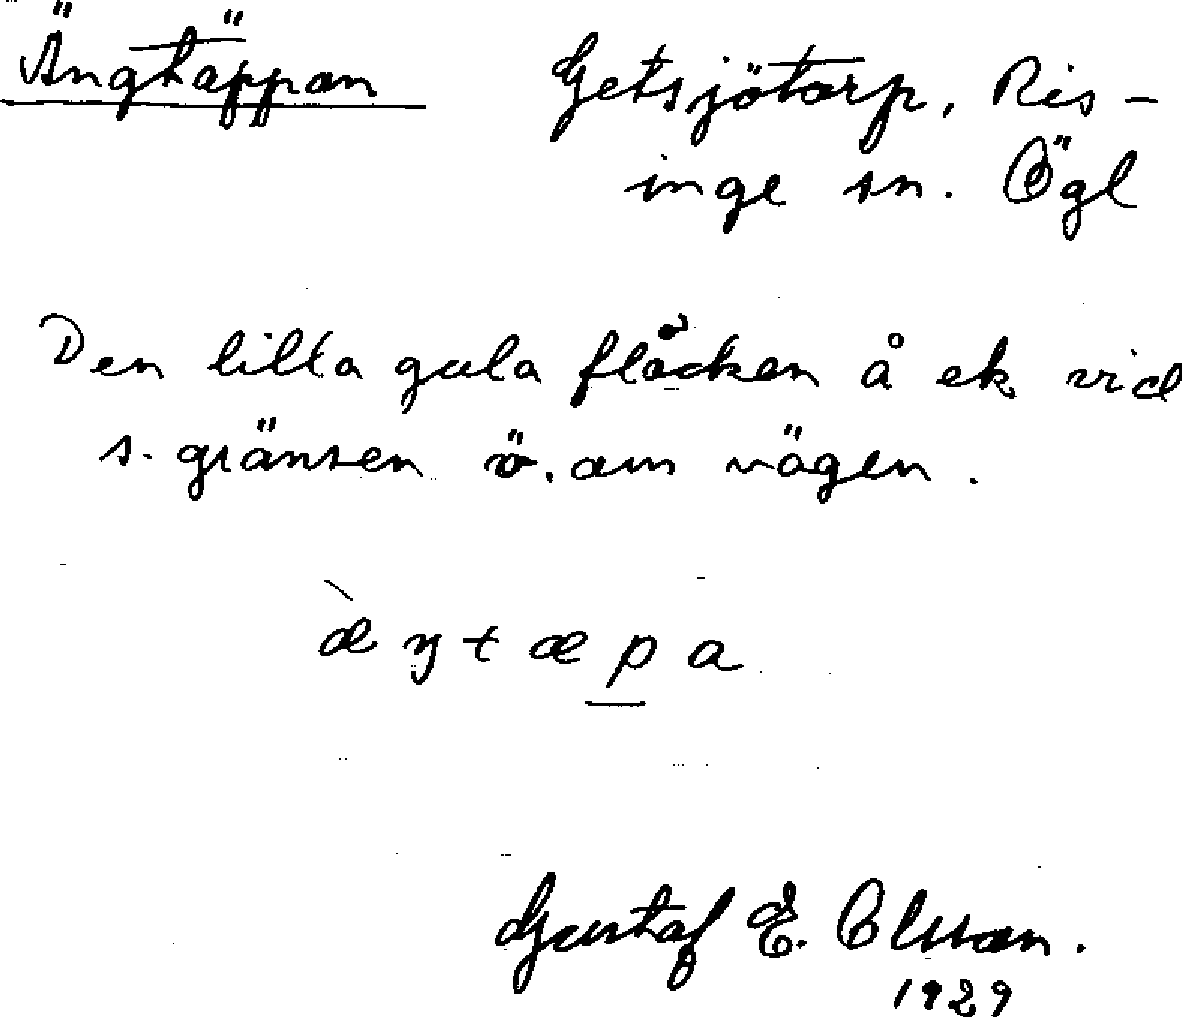 Ängtäppan
Getsjötorp, Ris-
inge sn. Ögl
Den lilla gula fläcken å ek vid
s. gränsen ö. om vägen.
æ̀ŋtæp̲a
Gustaf E. Olsson.
1929